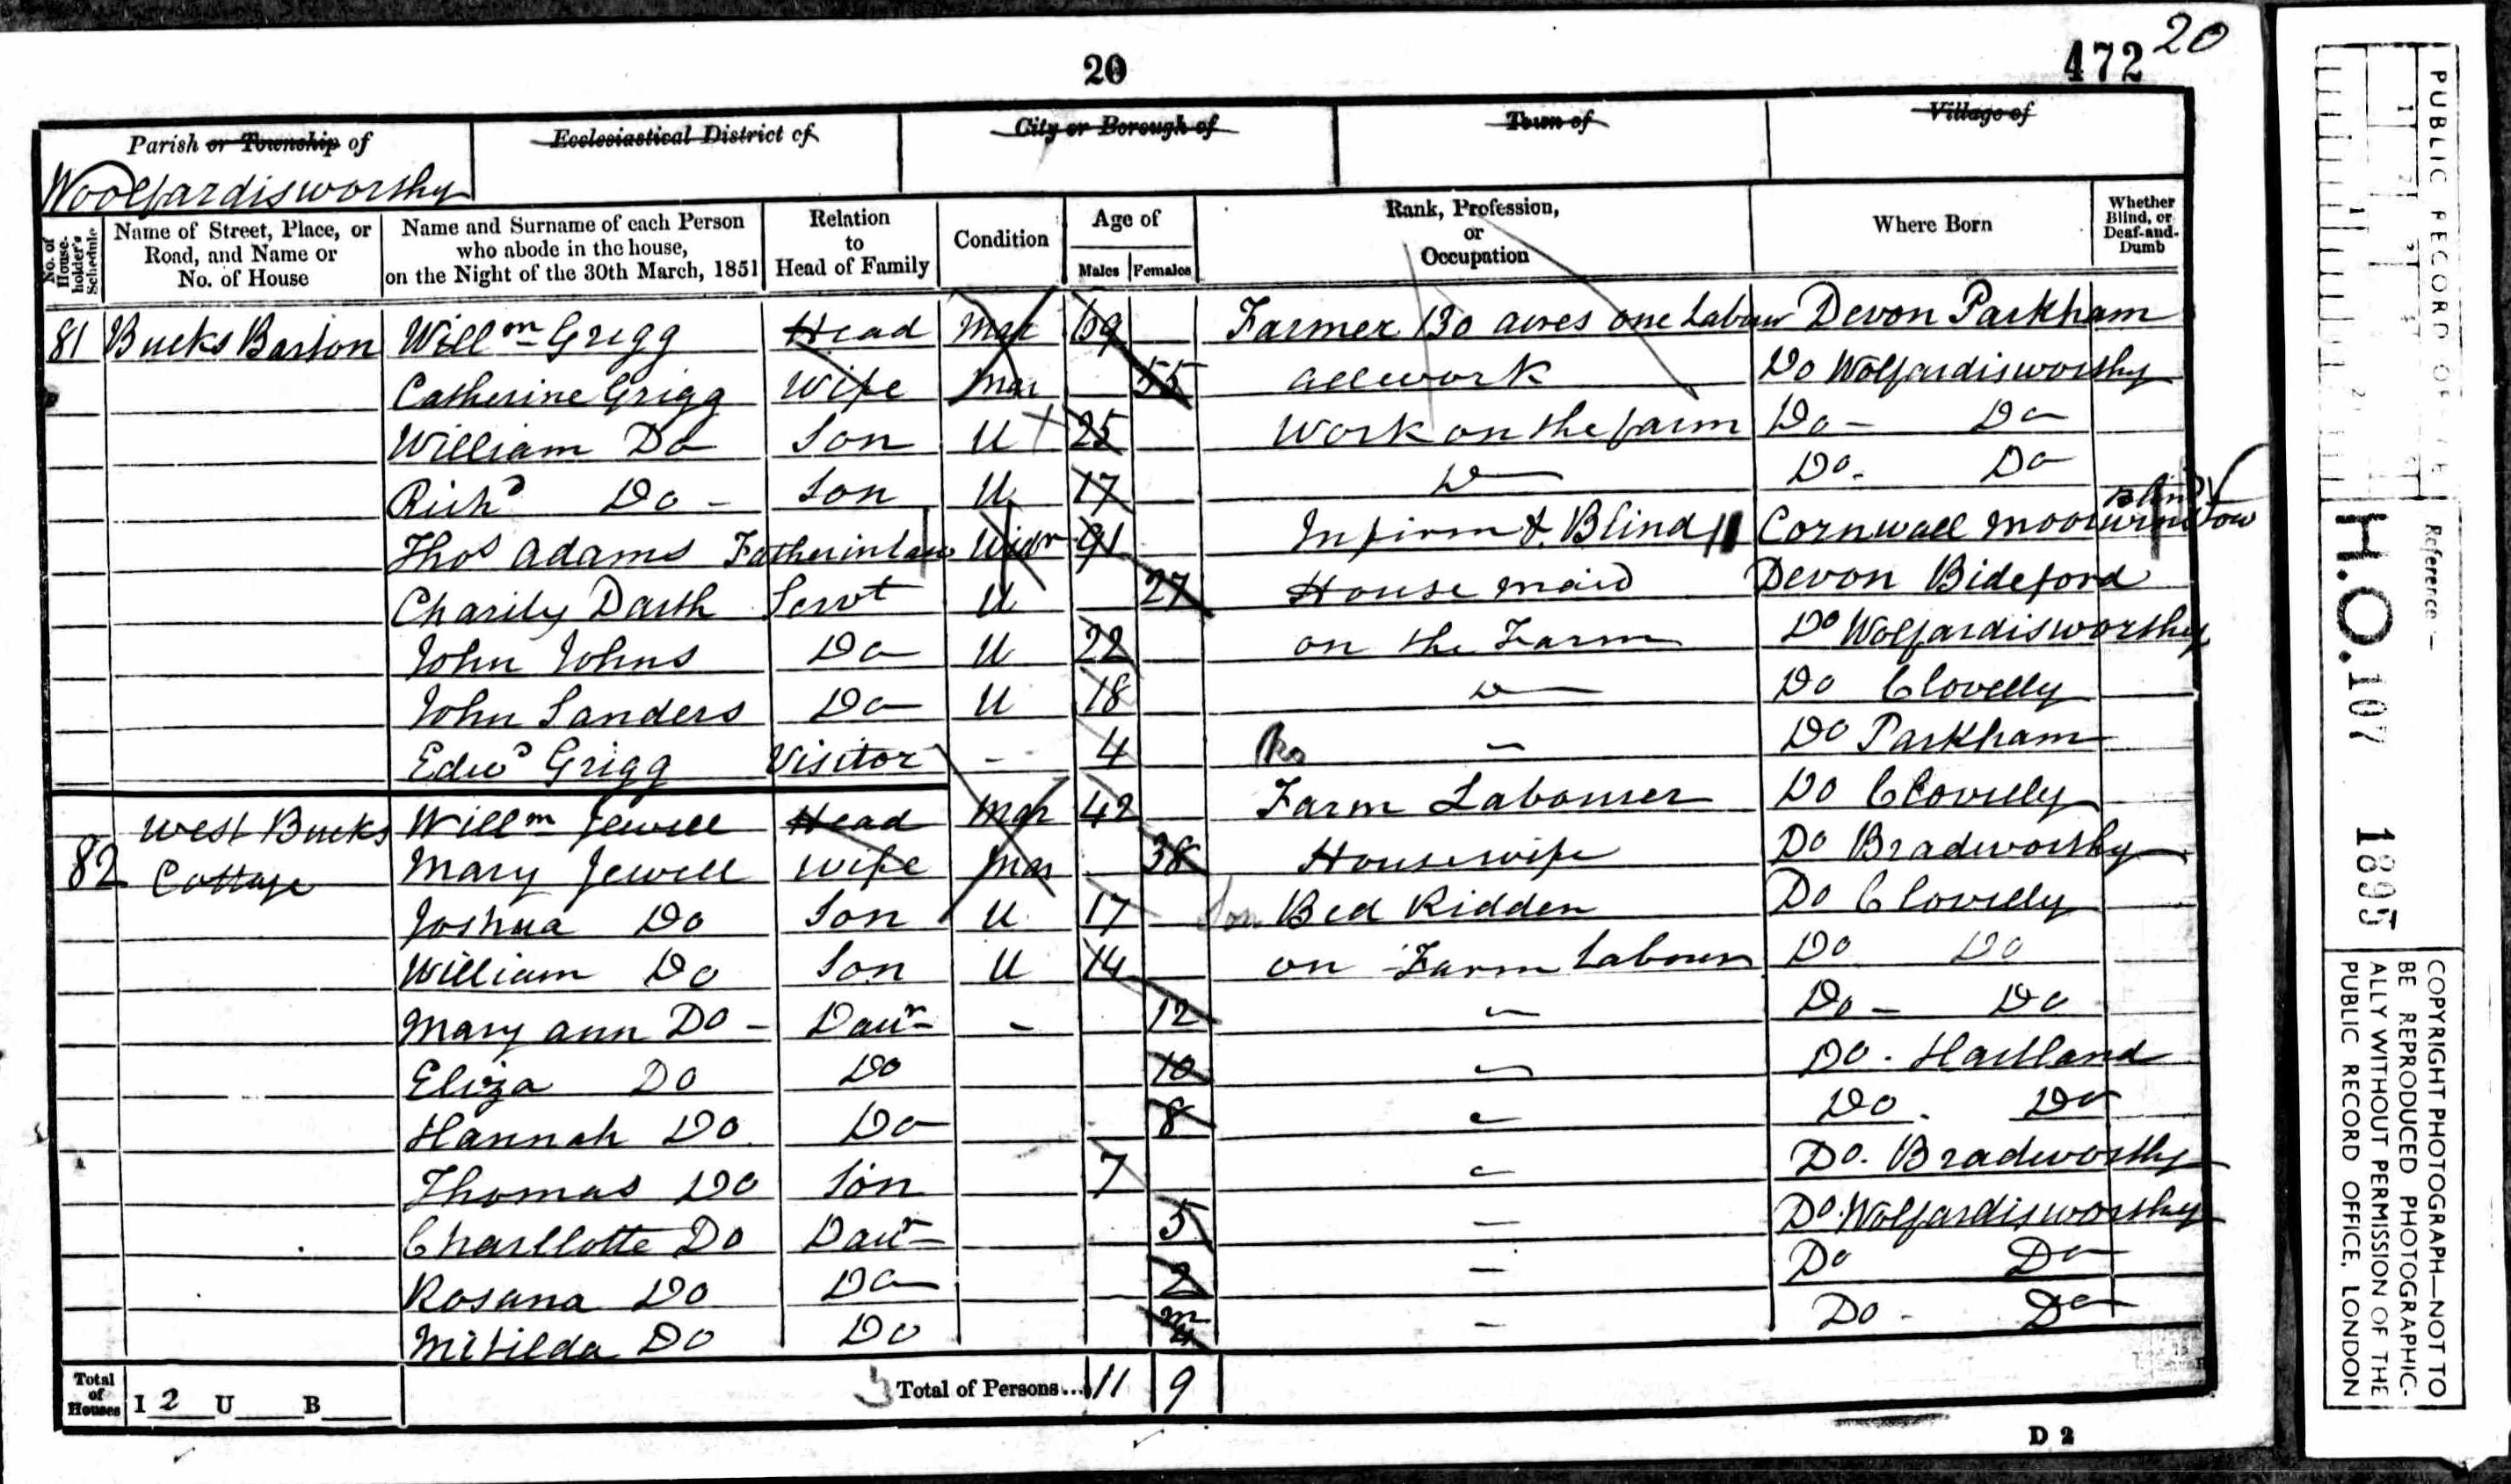 20
472 20
Parish or Township of
Ecclesiastical District of
City or Borough of
Town of
Village of
Woolfardisworthy
No. of House-holder's Schedule
Name of Street, Place, or Road, and Name or No. of House
Name and Surname of each Person who abode in the house, on the Night of the 30th March, 1851
Relation to Head of Family
Condition
Age of
Males Females
Rank, Profession, or Occupation
Where Born
Whether Blind, or Deaf-and-Dumb
81 Bucks Barton Willm Grigg Head Mar 69 Farmer 130 acres one Labour Devon Parkham
Catherine Grigg Wife Mar 55 allwork Do Wolfardisworthy
William Do Son U 25 Work on the farm Do - Do
Richd Do - Son U 17 Do Do. Do
Thos Adams Fatherinlaw Widr 91 Infirm & Blind Cornwall Moorwinstow Blind
Charity Darth Servt U 27 House maid Devon Bideford
John Johns Do U 22 on the Farm Do Wolfardisworthy
John Sanders Do U 18 Do Do Clovelly
Edwd Grigg Visitor - 4 - Do Parkham
82 West Bucks Cottage Willm Jewell Head Mar 42 Farm Labourer Do Clovelly
Mary Jewell Wife Mar 38 Housewife Do Bradworthy
Joshua Do Son U 17 Son Bed Ridden Do Clovelly
William Do Son U 14 on Farm Labour Do Do
Mary ann Do - Daur - 12 - Do - Do
Eliza Do Do 10 - Do. Hartland
Hannah Do Do 8 - Do. Do
Thomas Do Son 7 - Do. Bradworthy
Charllotte Do Daur 5 - Do. Wolfardisworthy
Rosana Do Do 2 - Do Do
Mitilda Do Do - Do - Do
Total of Houses I 2 U B Total of Persons... 11 9
D 2
PUBLIC RECORD OFFICE
Reference :-
H.O. 107 1895
COPYRIGHT PHOTOGRAPH—NOT TO
BE REPRODUCED PHOTOGRAPHIC-
ALLY WITHOUT PERMISSION OF THE
PUBLIC RECORD OFFICE, LONDON